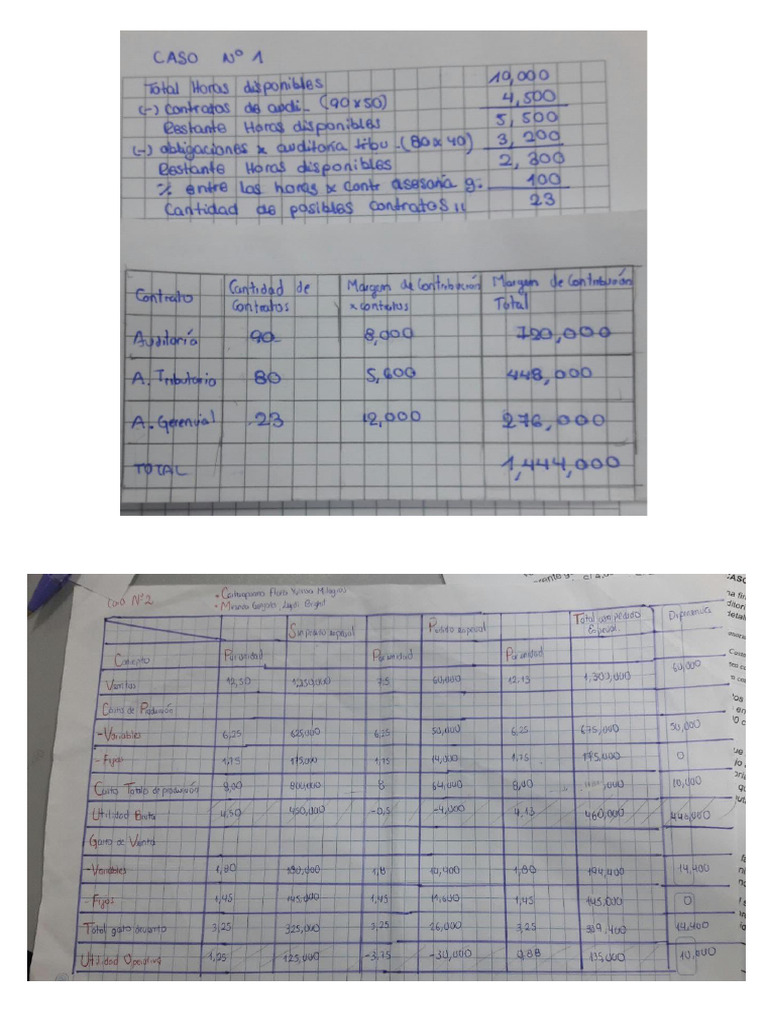 CASO Nº 1
Total Horas disponibles 10,000
(-) Contratos de audi_ (90x50) 4,500
Restante Horas disponibles 5,500
(-) obligaciones x auditoría tribu. (80 x 40) 3,200
Restante Horas disponibles 2,300
% entre las horas x contr asesoría g. 100
Cantidad de posibles contratos 23
Contrato Cantidad de Contratos Margen de Contribución x contratos Margen de Contribución Total
Auditoría 90 8,000 720,000
A. Tributario 80 5,600 448,000
A. Gerencial 23 12,000 276,000
TOTAL 1,444,000
Caso Nº 2
Sin pedido especial Pedido especial Total con pedido Especial Diferencia
Concepto Por unidad Por unidad Por unidad
Ventas 12,50 1,250,000 7.5 60,000 12,13 1,300,000 60,000
Costo de Producción
- Variables 6,25 625,000 6,25 50,000 6,25 675,000 50,000
- Fijos 1,75 175,000 1,75 14,000 1,75 175,000 0
Costos Totales de producción 8,00 800,000 8 64,000 8,00
Utilidad Bruta 4,50 450,000 -0,5 -4,000 4,13 460,000
Gastos de Venta
- Variables 1,80 180,000 1,8 14,400 1,80 194,400 14,400
- Fijos 1,45 145,000 1,45 11,600 1,45 145,000 0
Total gasto de venta 3,25 325,000 3,25 26,000 3,25 339,400 14,400
Utilidad Operativa 1,25 125,000 -3,75 -30,000 0,88 10,000